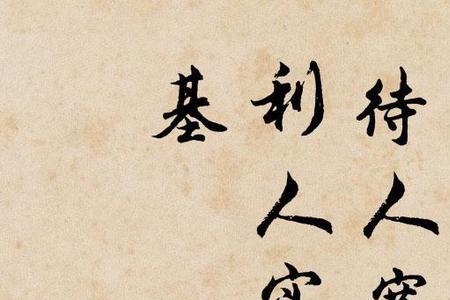 待人
利人
基